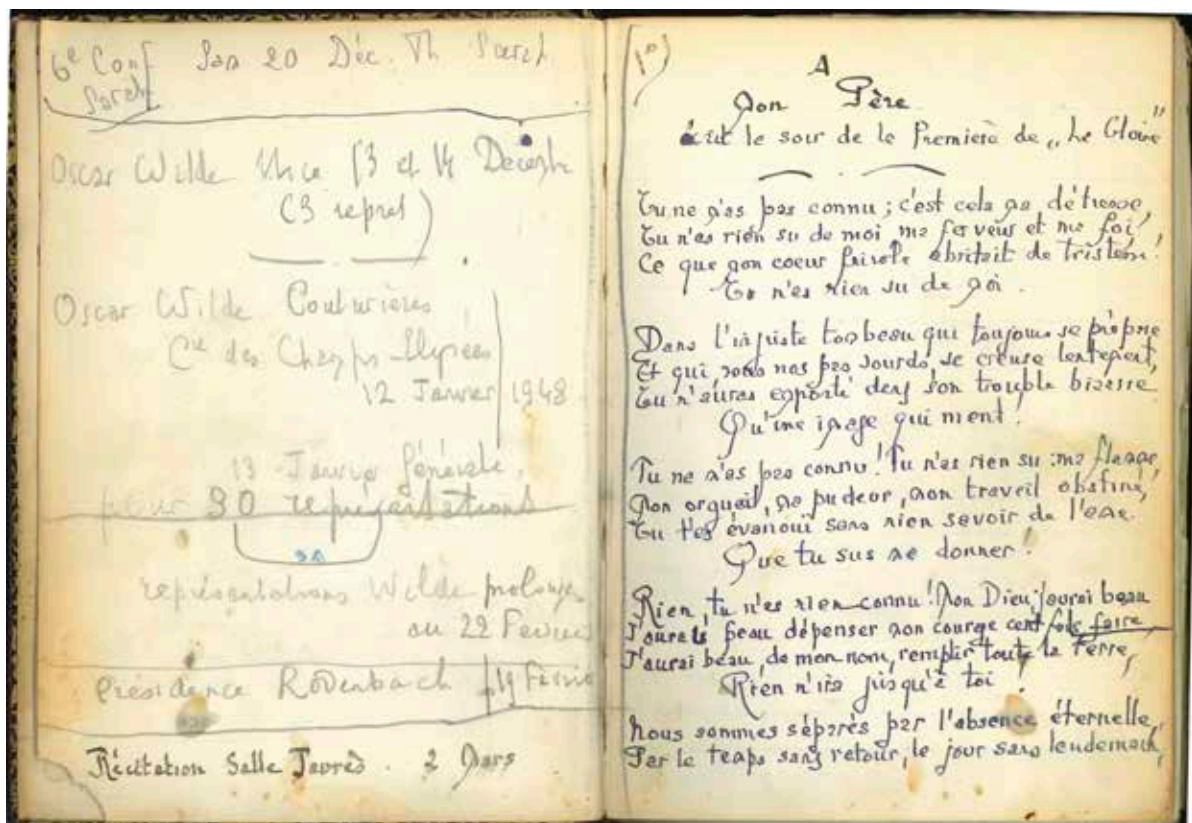 6e Conf Sam 20 Déc. Th Sarah
Sarah
Oscar Wilde Nice 13 et 14 Décembre
(3 repret)
Oscar Wilde Couturières
Cie des Champs-Elysées
12 Janvier 1948
13 Janvier Générale
pour 30 représentations
30
représentations Wilde prolongées
au 22 Fevrier
présidence Rodenbach 19 Février
Récitation Salle Jaurès . 2 Mars
1º)
A
Mon Père
écrit le soir de la Première de „La Gloire"
Tu ne m'as pas connu ; c'est cela ma détresse,
Tu n'as rien su de moi, ma ferveur et ma foi,
Ce que mon coeur frivole abritait de tristesse !
Tu n'as rien su de moi .
Dans l'injuste tombeau qui toujours se
Et qui sous nos pas sourds, se creuse lentement,
Tu n'auras emporté dans son trouble
Qu'une image qui ment !
Tu ne m'as pas connu ! Tu n'as rien su : ma flamme,
Mon orgueil, ma pudeur, mon travail obstiné,
Tu t'es évanoui sans rien savoir de l'âme
Que tu sus me donner !
Rien, tu n'as rien connu ! Mon Dieu, j'aurai beau
J'aurai beau dépenser mon courage cent fois faire,
J'aurai beau, de mon nom, remplir toute la Terre,
Rien n'ira jusqu'à toi !
Nous sommes séparés par l'absence éternelle,
Par le temps sans retour, le jour sans lendemain,